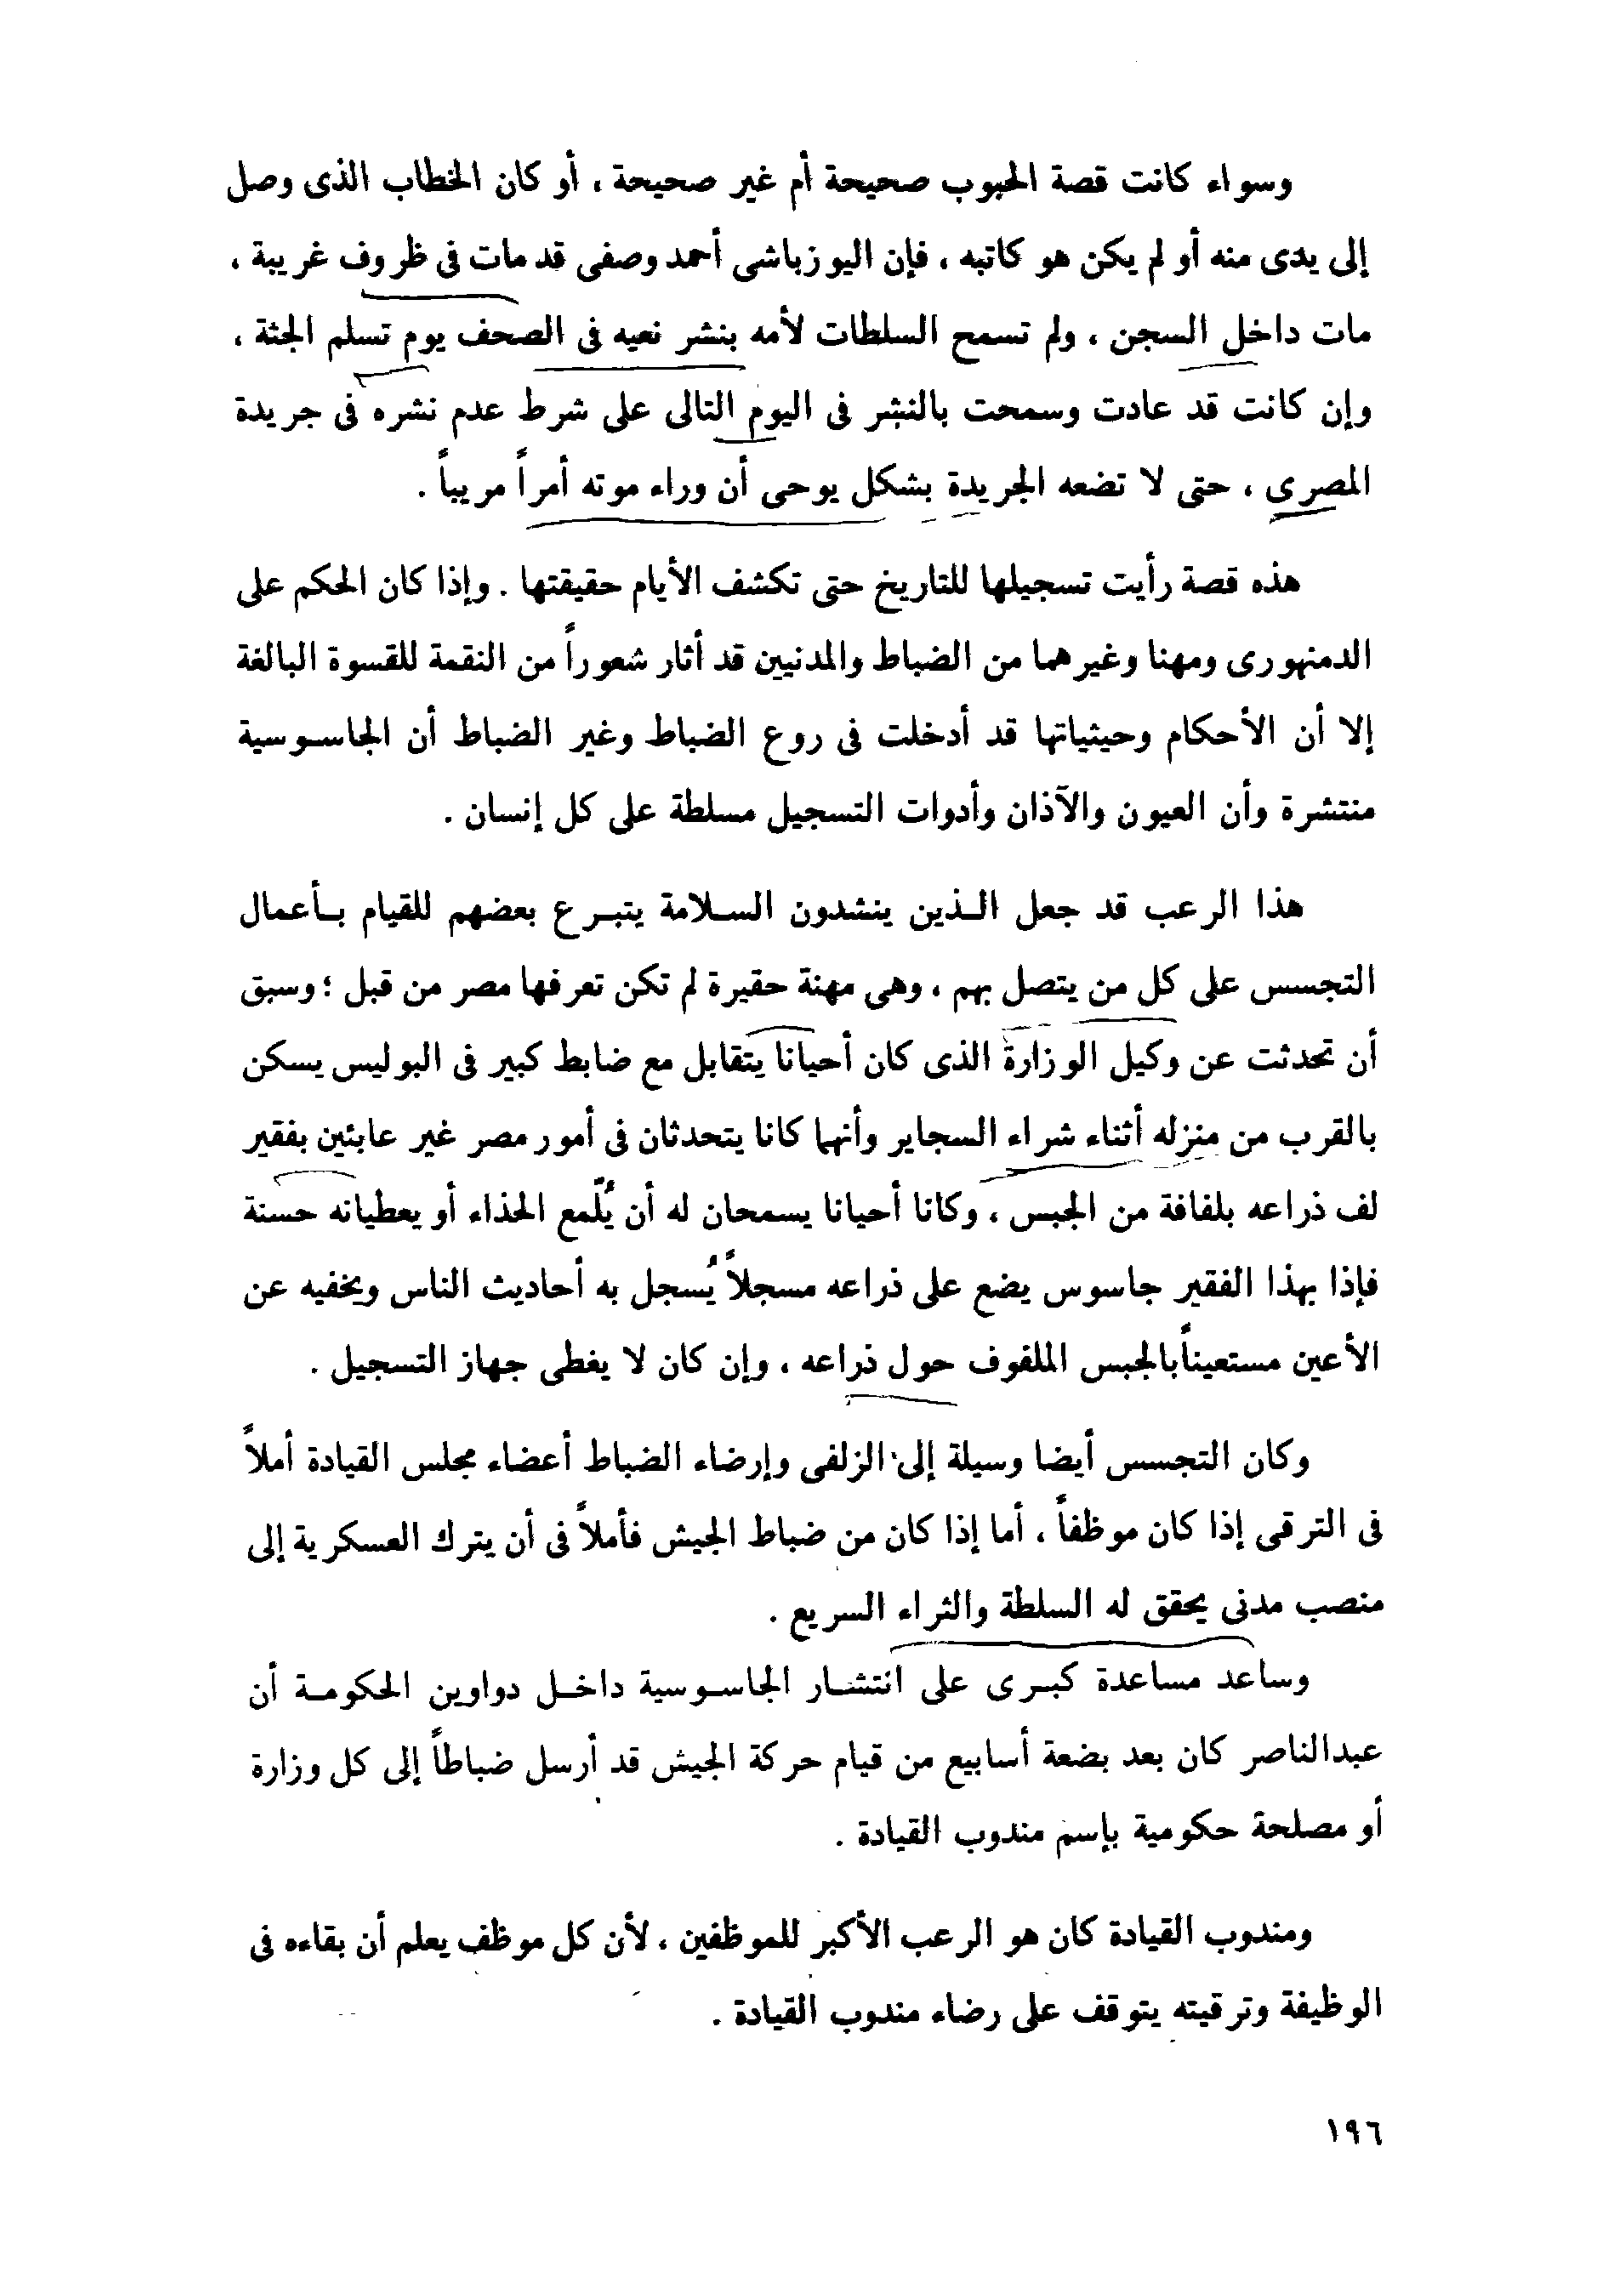 وسواء كانت قصة الحبوب صحيحة أم غير صحيحة ، أو كان الخطاب الذى وصل
إلى يدى منه أو لم يكن هو كاتبه ، فإن اليوزباشى أحمد وصفى قد مات فى ظروف غريبة ،
مات داخل السجن ، ولم تسمح السلطات لأمه بنشر نعيه فى الصحف يوم تسلم الجثة ،
وإن كانت قد عادت وسمحت بالنشر فى اليوم التالى على شرط عدم نشره فى جريدة
المصرى ، حتى لا تضعه الجريدة بشكل يوحى أن وراء موته أمراً مريباً .
هذه قصة رأيت تسجيلها للتاريخ حتى تكشف الأيام حقيقتها . وإذا كان الحكم على
الدمنهورى ومهنا وغيرهما من الضباط والمدنيين قد أثار شعوراً من النقمة للقسوة البالغة
إلا أن الأحكام وحيثياتها قد أدخلت فى روع الضباط وغير الضباط أن الجاسوسية
منتشرة وأن العيون والآذان وأدوات التسجيل مسلطة على كل إنسان .
هذا الرعب قد جعل الذين ينشدون السلامة يتبرع بعضهم للقيام بأعمال
التجسس على كل من يتصل بهم ، وهى مهنة حقيرة لم تكن تعرفها مصر من قبل ؛ وسبق
أن تحدثت عن وكيل الوزارة الذى كان أحيانا يتقابل مع ضابط كبير فى البوليس يسكن
بالقرب من منزله أثناء شراء السجاير وأنهما كانا يتحدثان فى أمور مصر غير عابئين بفقير
لف ذراعه بلفافة من الجبس ، وكانا أحيانا يسمحان له أن يُلّمع الحذاء أو يعطيانه حسنة
فإذا بهذا الفقير جاسوس يضع على ذراعه مسجلاً يُسجل به أحاديث الناس ويخفيه عن
الأعين مستعيناً بالجبس الملفوف حول ذراعه ، وإن كان لا يغطى جهاز التسجيل .
وكان التجسس أيضا وسيلة إلى الزلفى وإرضاء الضباط أعضاء مجلس القيادة أملاً
فى الترقى إذا كان موظفاً ، أما إذا كان من ضباط الجيش فأملاً فى أن يترك العسكرية إلى
منصب مدنى يحقق له السلطة والثراء السريع .
وساعد مساعدة كبرى على انتشار الجاسوسية داخل دواوين الحكومة أن
عبدالناصر كان بعد بضعة أسابيع من قيام حركة الجيش قد أرسل ضباطاً إلى كل وزارة
أو مصلحة حكومية بإسم مندوب القيادة .
ومندوب القيادة كان هو الرعب الأكبر للموظفين ، لأن كل موظف يعلم أن بقاءه فى
الوظيفة وترقيته يتوقف على رضاء مندوب القيادة .
١٩٦